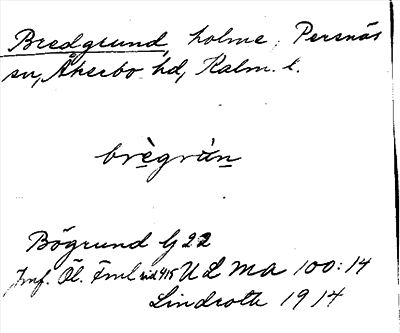 Bredgrund, holme, Persnäs
sn, Åkerbo hd, Kalm. l.
brègrùn
Bögrund G 22
Jmf. Öl. Fml sid 415 ULMA 100:14
Lindroth 1914